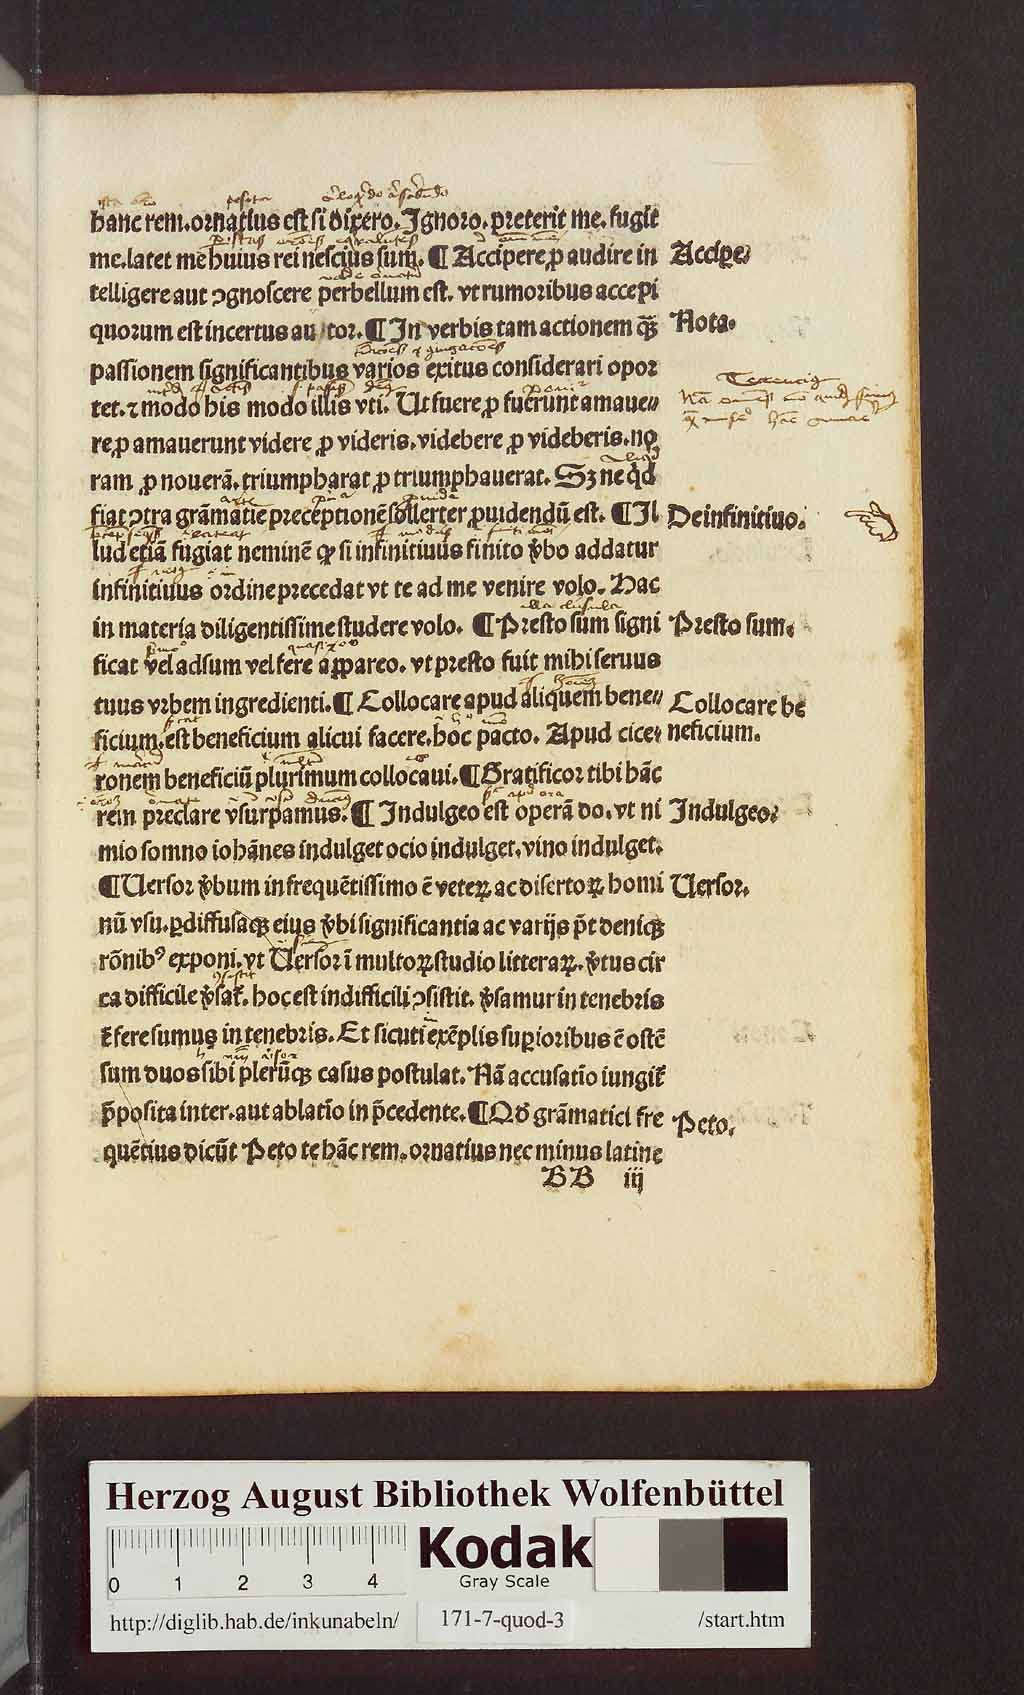 hanc rem. ornatius est si dixero. Ignoro. preterit me. fugit
me. latet me huius rei nescius sum. ¶ Accipere ꝓ audire in
Accipe
telligere aut ꝯgnoscere perbellum est. vt rumoribus accepi
quorum est incertus autor. ¶ In verbis tam actionem qȝ̃
Nota.
passionem significantibus varios exitus considerari opor
tet. ⁊ modo his modo illis vti. Ut fuere ꝓ fuerunt amaue⸗
re ꝓ amauerunt videre ꝓ videris. videbere ꝓ videberis. no
ram ꝓ nouerã. triumpharat ꝓ triumphauerat. Sꝫ ne qd̾
fiat ꝯtra grãmatie preceptionẽ sollerter ꝓuidendũ est. ¶ Il
De infinitiuo.
lud etiã fugiat neminẽ ꝙ si infinitiuus finito v̾bo addatur
infinitiuus ordine precedat vt te ad me venire volo. Hac
in materia diligentissime studere volo. ¶ Presto sum signi
Presto sum.
ficat vel adsum vel fere appareo. vt presto fuit mihi seruus
tuus vrbem ingredienti. ¶ Collocare apud aliquem bene⸗
Collocare be
ficium. est beneficium alicui facere. hoc pacto. Apud cice⸗
neficium.
ronem beneficiũ plurimum collocaui. ¶ Gratificor tibi hãc
rem preclare vsurpamus. ¶ Indulgeo est operã do. vt ni
Indulgeo.
mio somno iohãnes indulget ocio indulget. vino indulget.
¶ Uersor v̾bum in frequẽtissimo ẽ veteꝝ ac disertoꝝ homi
Uersor.
nũ vsu. ꝑdiffusaqꝫ eius v̾bi significantia ac varijs p̃t deniqꝫ
rõnibꝰ exponi. vt Uersor ĩ multoꝝ studio litteraꝝ. v̾tus cir
ca difficile v̾sat̃. hoc est in difficili ꝯsistit. v̾samur in tenebris
.i. fere sumus in tenebris. Et sicuti exẽplis supioribus ẽ ostẽ
sum duos sibi plerũqꝫ casus postulat. Nã accusatio iungit̃
p̃posita inter. aut ablatio in p̃cedente. ¶ Qd̾ grãmatici fre
Peto.
quẽtius dicũt Peto te hãc rem. ornatius nec minus latine
BB iij
Herzog August Bibliothek Wolfenbüttel
0 1 2 3 4
Kodak
Gray Scale
http://diglib.hab.de/inkunabeln/ 171-7-quod-3 /start.htm